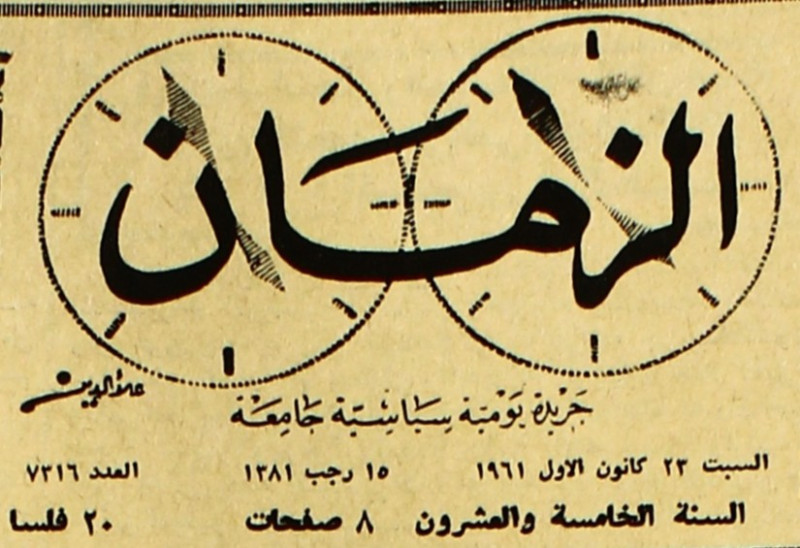 الزمان
علاء الدين
جريدة يومية سياسية جامعة
السبت ٢٣ كانون الاول ١٩٦١ ١٥ رجب ١٣٨١ العدد ٧٣١٦
السنة الخامسة والعشرون ٨ صفحات ٢٠ فلسا